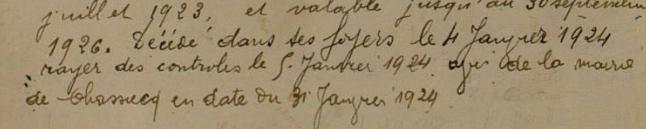 juillet 1923, et valable jusqu'au 30 septembre
1926. Décédé dans ses foyers le 4 Janvier 1924
rayer des controles le 5 Janvier 1924 de la mairie
de Chasseneuil en date du 31 Janvier 1924